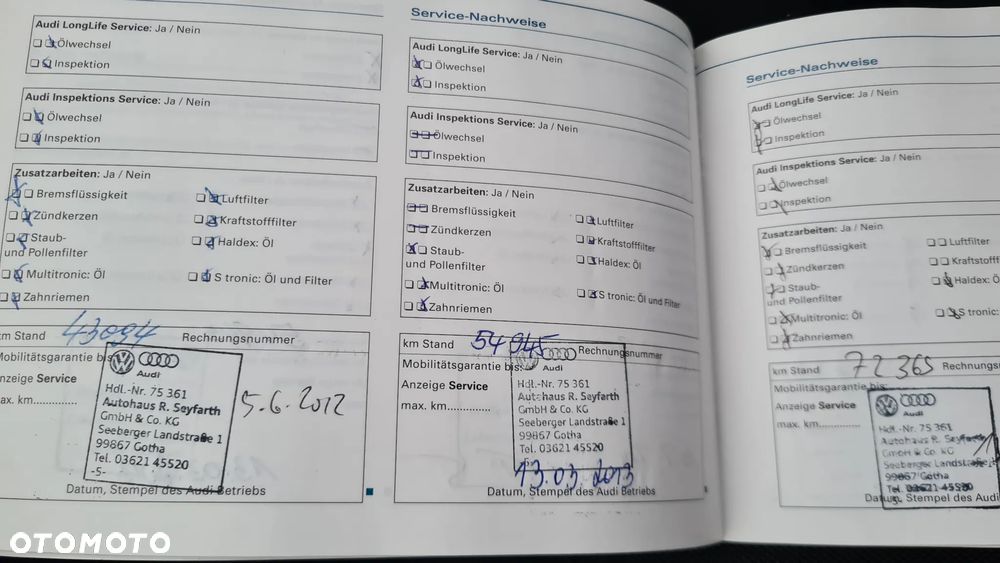 Audi LongLife Service: Ja / Nein
Ölwechsel
Inspektion
Audi Inspektions Service: Ja / Nein
Ölwechsel
Inspektion
Zusatzarbeiten: Ja / Nein
Bremsflüssigkeit
Luftfilter
Zündkerzen
Kraftstofffilter
Staub-
und Pollenfilter
Haldex: Öl
Multitronic: Öl
S tronic: Öl und Filter
Zahnriemen
km Stand 43094 Rechnungsnummer
Mobilitätsgarantie bis
Anzeige Service
max. km
Audi
Hdl.-Nr. 75 361
Autohaus R. Seyfarth
GmbH & Co. KG
Seeberger Landstraße 1
99867 Gotha
Tel. 03621 45520
-5-
5.6.2012
Datum, Stempel des Audi Betriebs
Service-Nachweise
Audi LongLife Service: Ja / Nein
Ölwechsel
Inspektion
Audi Inspektions Service: Ja / Nein
Ölwechsel
Inspektion
Zusatzarbeiten: Ja / Nein
Bremsflüssigkeit
Luftfilter
Zündkerzen
Kraftstofffilter
Staub-
und Pollenfilter
Haldex: Öl
Multitronic: Öl
S tronic: Öl und Filter
Zahnriemen
km Stand 54945 Rechnungsnummer
Mobilitätsgarantie bis:
Anzeige Service
max. km..............
Audi
Hdl.-Nr. 75 361
Autohaus R. Seyfarth
GmbH & Co. KG
Seeberger Landstraße 1
99867 Gotha
Tel. 03621 45520
-5-
13.03.2013
Datum, Stempel des Audi Betriebs
Service-Nachweise
Audi LongLife Service: Ja / Nein
Ölwechsel
Inspektion
Audi Inspektions Service: Ja / Nein
Ölwechsel
Inspektion
Zusatzarbeiten: Ja / Nein
Bremsflüssigkeit
Luftfilter
Zündkerzen
Kraftstofff
Staub-
und Pollenfilter
Haldex: Ö
Multitronic: Öl
S tronic:
Zahnriemen
km Stand 72365 Rechnungsn
Mobilitätsgarantie bis:
Anzeige Service
max. km..............
Audi
Hdl.-Nr. 75 361
Autohaus R. Seyfarth
GmbH & Co. KG
Seeberger Landstraße
99867 Gotha
Tel. 03621 45520
Datum, Stempel des Audi
OTOMOTO